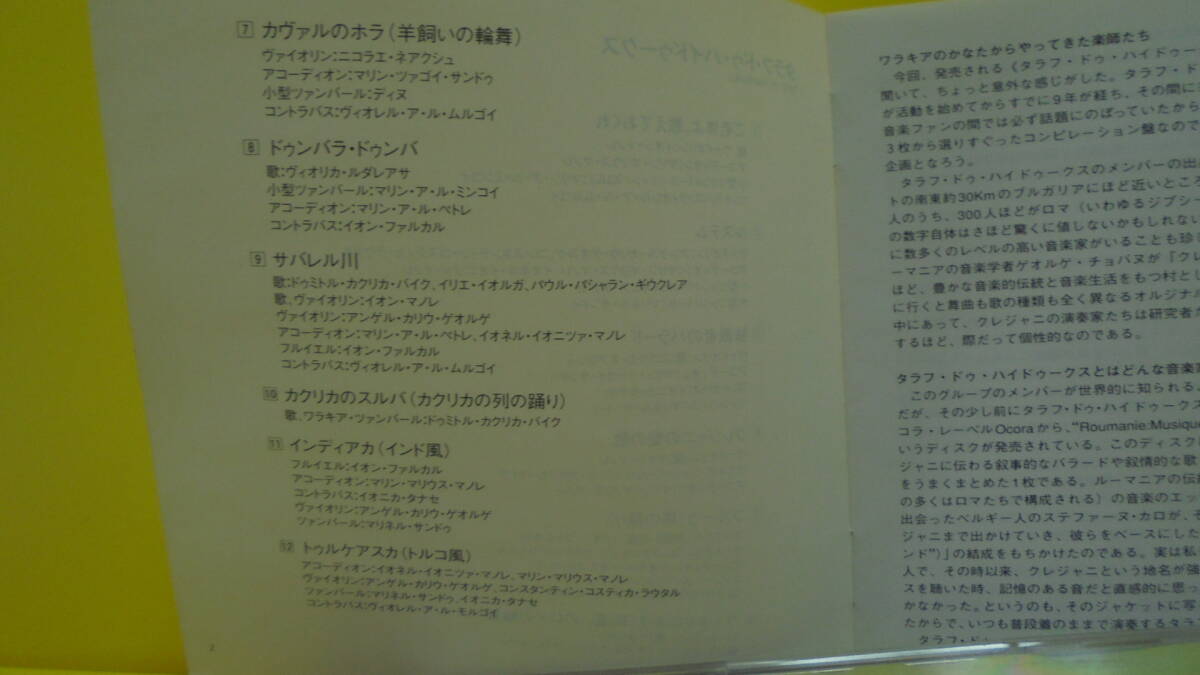 7 カヴァルのホラ(羊飼いの輪舞)
ヴァイオリン:ニコラエ・ネアクシュ
アコーディオン:マリン・ツァゴイ・サンドゥ
小型ツァンバール:ディヌ
コントラバス:ヴィオレル・ア・ル・ムルゴイ
8 ドゥンバラ・ドゥンバ
歌:ヴィオリカ・ルダレアサ
小型ツァンバール:マリン・ア・ル・ミンコイ
アコーディオン:マリン・ア・ル・ペトレ
コントラバス:イオン・ファルカル
9 サバレル川
歌:ドゥミトル・カクリカ・バイク、イリエ・イオルガ、パウル・パシャラン・ギウクレア
歌、ヴァイオリン:イオン・マノレ
ヴァイオリン:アンゲル・カリウ・ゲオルゲ
アコーディオン:マリン・ア・ル・ペトレ、イオネル・イオニツァ・マノレ
フルイエル:イオン・ファルカル
コントラバス:ヴィオレル・ア・ル・ムルゴイ
10 カクリカのスルバ(カクリカの列の踊り)
歌、ワラキア・ツァンバール:ドゥミトル・カクリカ・バイク
11 インディアカ(インド風)
フルイエル:イオン・ファルカル
アコーディオン:マリン・マリウス・マノレ
コントラバス:イオニカ・タナセ
ヴァイオリン:アンゲル・カリウ・ゲオルゲ
ツァンバール:マリネル・サンドゥ
12 トゥルケアスカ(トルコ風)
アコーディオン:イオネル・イオニツァ・マノレ、マリン・マリウス・マノレ
ヴァイオリン:アンゲル・カリウ・ゲオルゲ、コンスタンティン・コスティカ・ラウタル
ツァンバール:マリネル・サンドゥ、イオニカ・タナセ
コントラバス:ヴィオレル・ア・ル・モルゴイ
2
ワラキアのかなたからやってきた楽師たち
今回、発売される《タラフ・ドゥ・ハイドゥー
聞いて、ちょっと意外な感じがした。タラフ・ド
が活動を始めてからすでに9年が経ち、その間に
音楽ファンの間では必ず話題にのぼっていたから
3枚から選りすぐったコンピレーション盤なので
企画となろう。
タラフ・ドゥ・ハイドゥークスのメンバーの出
トの南東約30Kmのブルガリアにほど近いところ
人のうち、300人ほどがロマ(いわゆるジプシー
の数字自体はさほど驚くに値しないかもしれない
に数多くのレベルの高い音楽家がいることも珍し
ーマニアの音楽学者ゲオルゲ・チョバヌが「クレ
ほど、豊かな音楽的伝統と音楽生活をもつ村とし
に行くと舞曲も歌の種類も全く異なるオルジナル
中にあって、クレジャニの演奏家たちは研究者が
するほど、際だって個性的なのである。
タラフ・ドゥ・ハイドゥークスとはどんな音楽家
このグループのメンバーが世界的に知られる
だが、その少し前にタラフ・ドゥ・ハイドゥークス
コラ・レーベルOcoraから、"Roumanie:Musique
いうディスクが発売されている。このディスク
ジャニに伝わる叙事的なバラードや叙情的な歌
をうまくまとめた1枚である。ルーマニアの伝
の多くはロマたちで構成される)の音楽のエッ
出会ったベルギー人のステファーヌ・カロが、そ
ジャニまで出かけていき、彼らをベースにした
ンド")」の結成をもちかけたのである。実は私
人で、その時以来、クレジャニという地名が強
スを聴いた時、記憶のある音だと直感的に思っ
かなかった。というのも、そのジャケットに写
たからで、いつも普段着のままで演奏するタラ
タラフ・ド